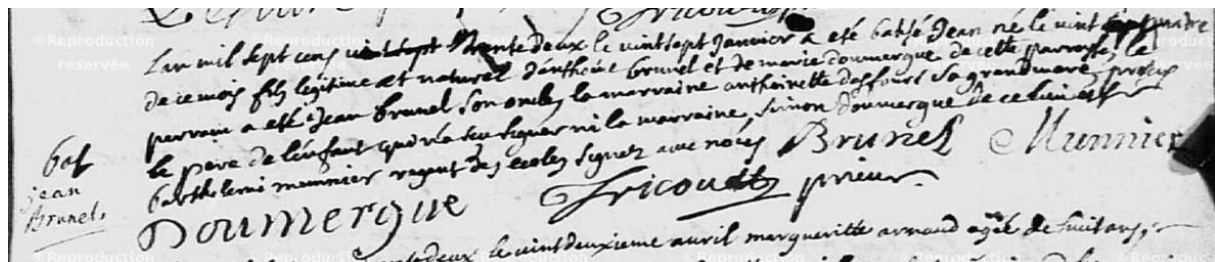 Lan mil sept cens trente deux le vint sept Janvier a eté batisé Jean né le vint quatre
de ce mois fils legitime et naturel d'anthoine brunel et de marie doumergue de cette parroisse, le
parrain a eté Jean brunel son oncle, la marraine anthoinette dasfours sa grand mere, presens
le pere de l'enfant qui n'a sceu signer ni la marraine, simon doumergue de ce lieu et sr
barthelemi munnier regent des ecoles signez avec nous Brunel Munnier
bat
jean
Brunel.
Doumergue Fricoud prieur.
deux le vint deuxieme avril margueritte arnaud agée de huit ans,